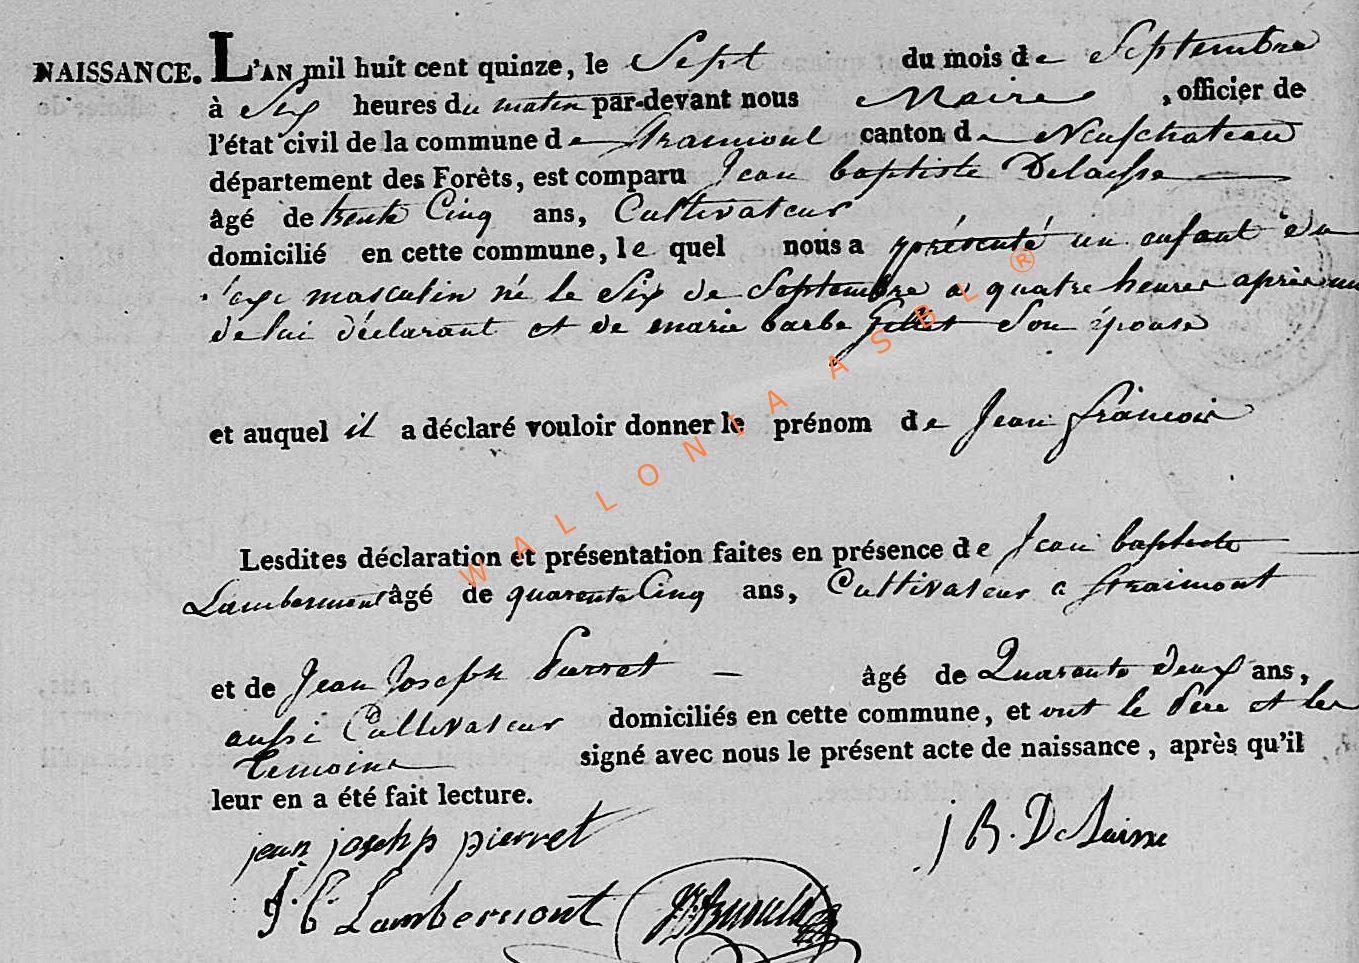 NAISSANCE. L'AN mil huit cent quinze, le Sept du mois de Septembre
à Six heures du matin par-devant nous Maire, officier de
l'état civil de la commune de Straimont canton de Neufchateau
département des Forêts, est comparu Jean baptiste Delaisse
âgé de trente Cinq ans, Cultivateur
domicilié en cette commune, lequel nous a présenté un enfant du
sexe masculin né le Six de Septembre a quatre heures après
de lui déclarant et de marie barbe Gillet Son épouse
et auquel il a déclaré vouloir donner le prénom de Jean francois
Lesdites déclaration et présentation faites en présence de Jean baptiste
Lambermont âgé de quarente Cinq ans, Cultivateur a Straimont
et de Jean Joseph Pierret âgé de Quarante deux ans,
aussi Cultivateur domiciliés en cette commune, et ont le Père et les
temoins signé avec nous le présent acte de naissance, après qu'il
leur en a été fait lecture.
jean joseph pierret
j B. DeLaisse
J. B. Lambermont
WALLONIA ASBL ®